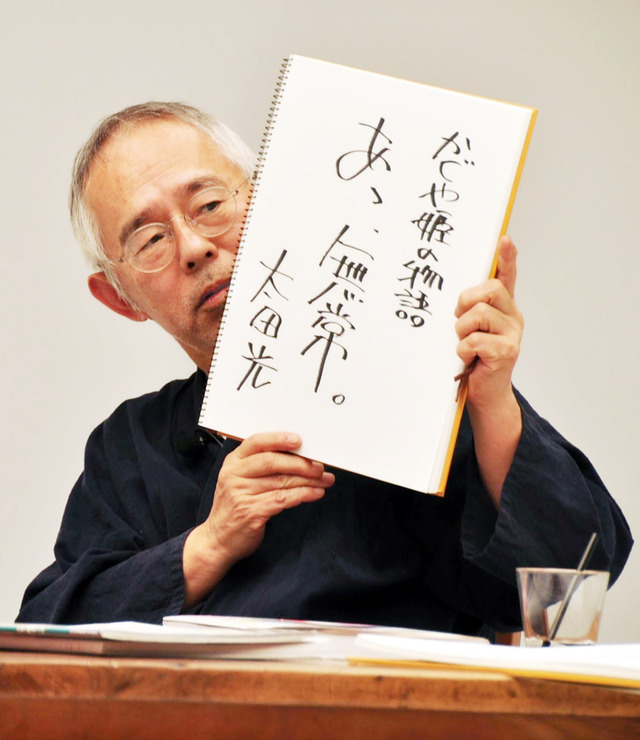 かぐや姫の物語。
あゝ、無常。
太田光